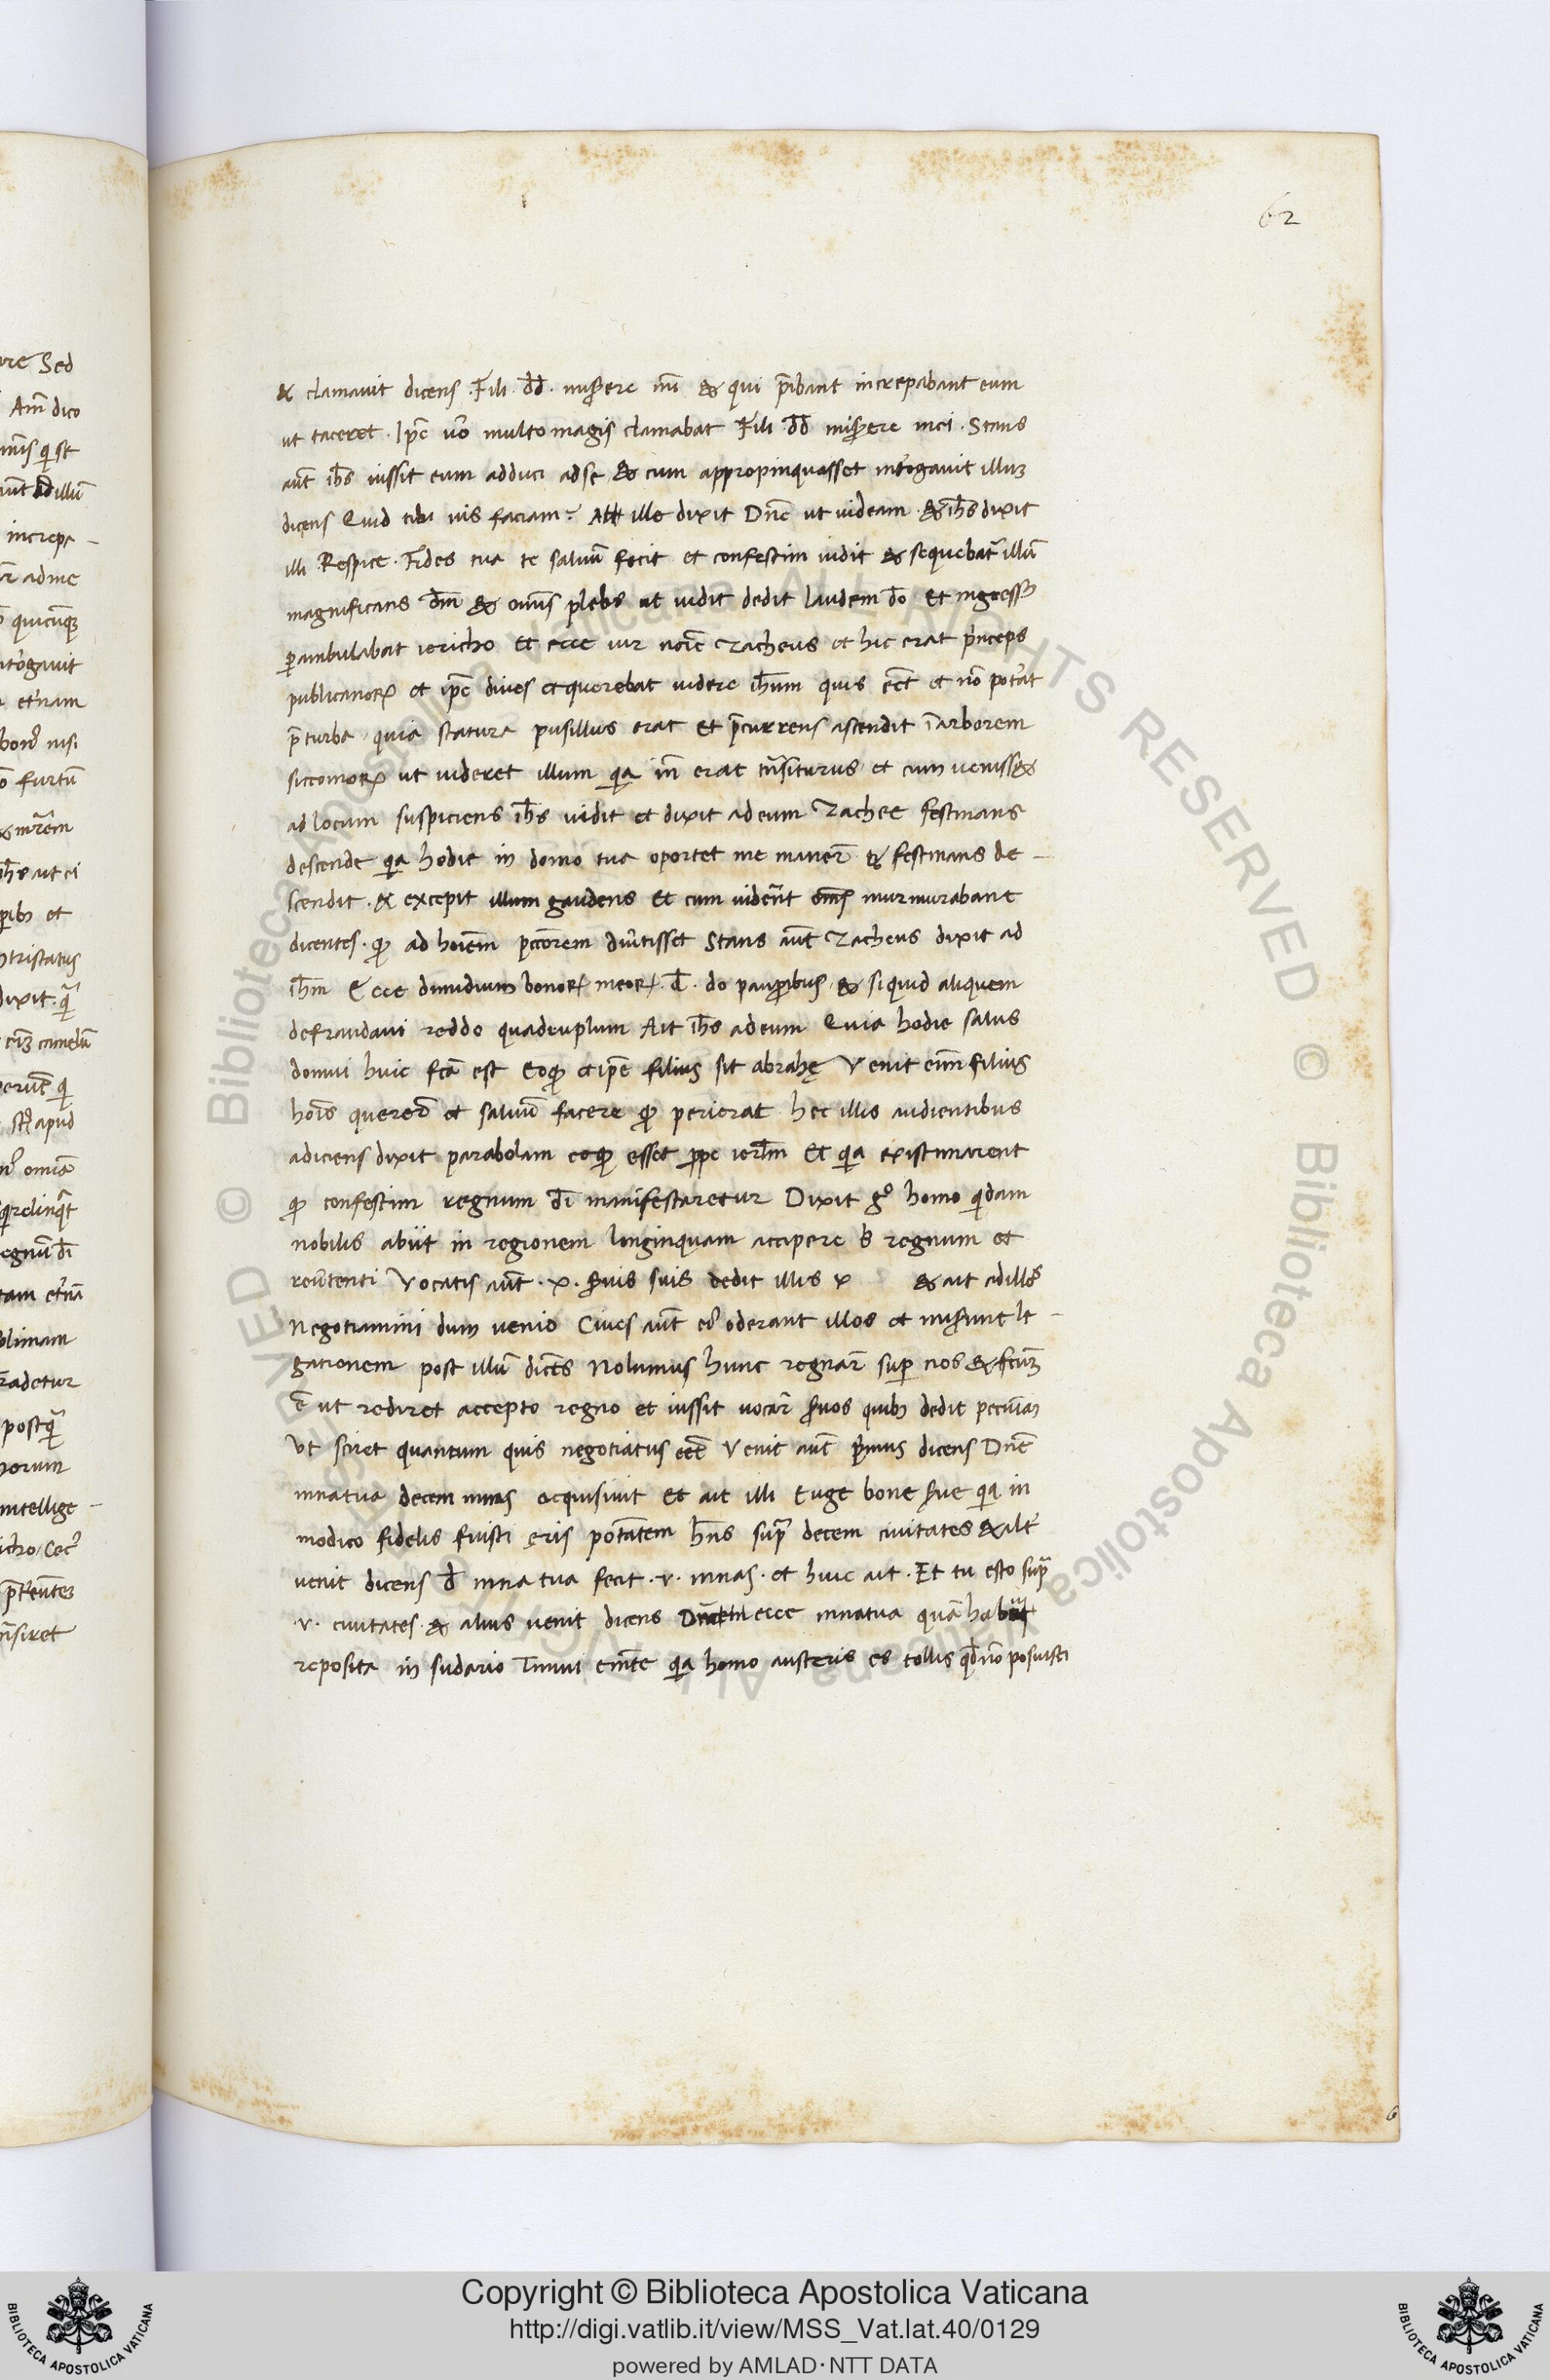 ure Sed
Am̄ dico
increpa-
r̄ ad me
quicūq̨
nt̾rogauit
et̾nam
nisi
furtū
ih̄s ait ei
ntristatus
dixit
camelū
apud
omīa
egnū dī
tam et̾nā
adetur
postq̄
intellige-
nsiret
62
& clamauit dicens . Fili d̄d . mis̾ere mi & qui p̄ibant increpabant eum
ut taceret . Ip̄e u̾o multo magis clamabat Fili d̄d mis̾ere mei . Stans
aūt ih̄s iussit eum adduci ad se & cum appropinquasset int̾rogauit illuꝫ
dicens Quid tibi uis faciam? At ille dixit Dn̄e ut uideam . & ih̄s dixit
illi Respice . Fides tua te saluū fecit et confestim uidit & sequebat̾ illū
magnificans dm̄ & omīs plebs ut uidit dedit laudem dō Et ingressꝰ
ꝑambulabat iericho Et ecce uir noīe Zacheus et hic erat pⁱnceps
publicanoꝝ et ip̄e diues et querebat uidere ih̄um quis eēt et nō pot̾at
p̄ turba quia statura pusillus erat Et p̄currens ascendit ī arborem
siccomoꝝ ut uideret illum qia in̄ erat tn̄siturus et cum uenisset
ad locum suspiciens ih̄s uidit et dixit ad eum Zachee festinans
descende qia hodie in domo tua oportet me maner̄ & festinans de-
scendit . & excepit illum gaudens Et cum uider̄nt om̄s murmurabant
dicentes . ꝙ ad hoīem pcc̄orem diu̾tisset Stans aūt Zacheus dixit ad
ih̄m Ecce dimidium bonoꝝ meoꝝ . d̄ . do paup̱ibus & si quid aliquem
defraudaui reddo quadruplum Ait ih̄s ad eum Quia hodie salus
domui huic fc̄a est Eo ꝙ et ip̄e filius sit abrahę Venit enim̄ filius
hoīs querer̄ et saluū facere ꝙ perierat hec illis audientibus
adiciens dixit parabolam eo ꝙ esset ꝓpe ierl̄m Et qia existimarent
ꝙ confestim regnum dī manifestaretur Dixit g° homo qidam
nobilis abiit in regionem longinquam accipere s̾ regnum et
reu̾tenti Vocatis aūt . x . s̾uis suis dedit illis x & ait ad illos
Negotiamini dum uenio Ciues aūt ei̾ oderant illos et mis̾unt le-
gationem post illū dicēs Nolumus hunc regnar̄ suꝑ nos & fc̄uꝫ
ē ut rediret accepto regno et iussit uocar̄ s̾uos quibꝫ dedit pecuīaꝫ
Ut sciret quantum quis negotiatus eēt Venit aūt pⁱmus dicens Dn̄e
mna tua decem mnas acquisiuit Et ait illi Euge bone s̾ue qia in
modico fidelis fuisti eris potātem hn̄s supᵃ decem ciuitates & alt̾
uenit dicens d̄ mna tua fecit . v . mnas . et huic ait . Et tu esto supᵃ
. v . ciuitates . & alius uenit dicens ecce mna tua quā
reposita in sudario Timui enīm te qia homo austeris es tollis qd̄ nō posuisti
6
© Biblioteca Apostolica Vaticana ALL RIGHTS RESERVED
Copyright © Biblioteca Apostolica Vaticana
http://digi.vatlib.it/view/MSS_Vat.lat.40/0129
powered by AMLAD·NTT DATA
BIBLIOTECA APOSTOLICA VATICANA
BIBLIOTECA APOSTOLICA VATICANA